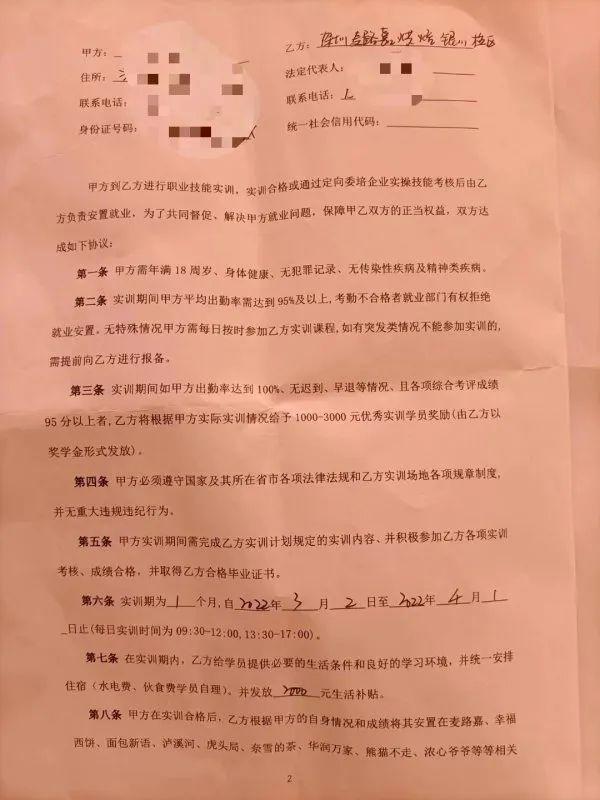 甲方：
乙方：深圳麦路嘉烘焙银川校区
住所：
法定代表人：
联系电话：
联系电话：
身份证号码：
统一社会信用代码：
甲方到乙方进行职业技能实训，实训合格或通过定向委培企业实操技能考核后由乙
方负责安置就业，为了共同督促、解决甲方就业问题，保障甲乙双方的正当权益，双方达
成如下协议：
第一条 甲方需年满 18 周岁、身体健康、无犯罪记录、无传染性疾病及精神类疾病。
第二条 实训期间甲方平均出勤率需达到 95%及以上，考勤不合格者就业部门有权拒绝
就业安置。无特殊情况甲方需每日按时参加乙方实训课程，如有突发类情况不能参加实训的，
需提前向乙方进行报备。
第三条 实训期间如甲方出勤率达到 100%、无迟到、早退等情况、且各项综合考评成绩
95 分以上者，乙方将根据甲方实际实训情况给予 1000-3000 元优秀实训学员奖励(由乙方以
奖学金形式发放)。
第四条 甲方必须遵守国家及其所在省市各项法律法规和乙方实训场地各项规章制度，
并无重大违规违纪行为。
第五条 甲方实训期间需完成乙方实训计划规定的实训内容、并积极参加乙方各项实训
考核、成绩合格，并取得乙方合格毕业证书。
第六条 实训期为 1 个月，自 2022年 3 月 2 日至 2022年 4 月 1
日止(每日实训时间为 09:30-12:00,13:30-17:00)。
第七条 在实训期内，乙方给学员提供必要的生活条件和良好的学习环境，并统一安排
住宿（水电费、伙食费学员自理)。并发放 2000 元生活补贴。
第八条 甲方在实训合格后，乙方根据甲方的自身情况和成绩将其安置在麦路嘉、幸福
西饼、面包新语、泸溪河、虎头局、奈雪的茶、华润万家、熊猫不走、浓心爷爷等等相关
2